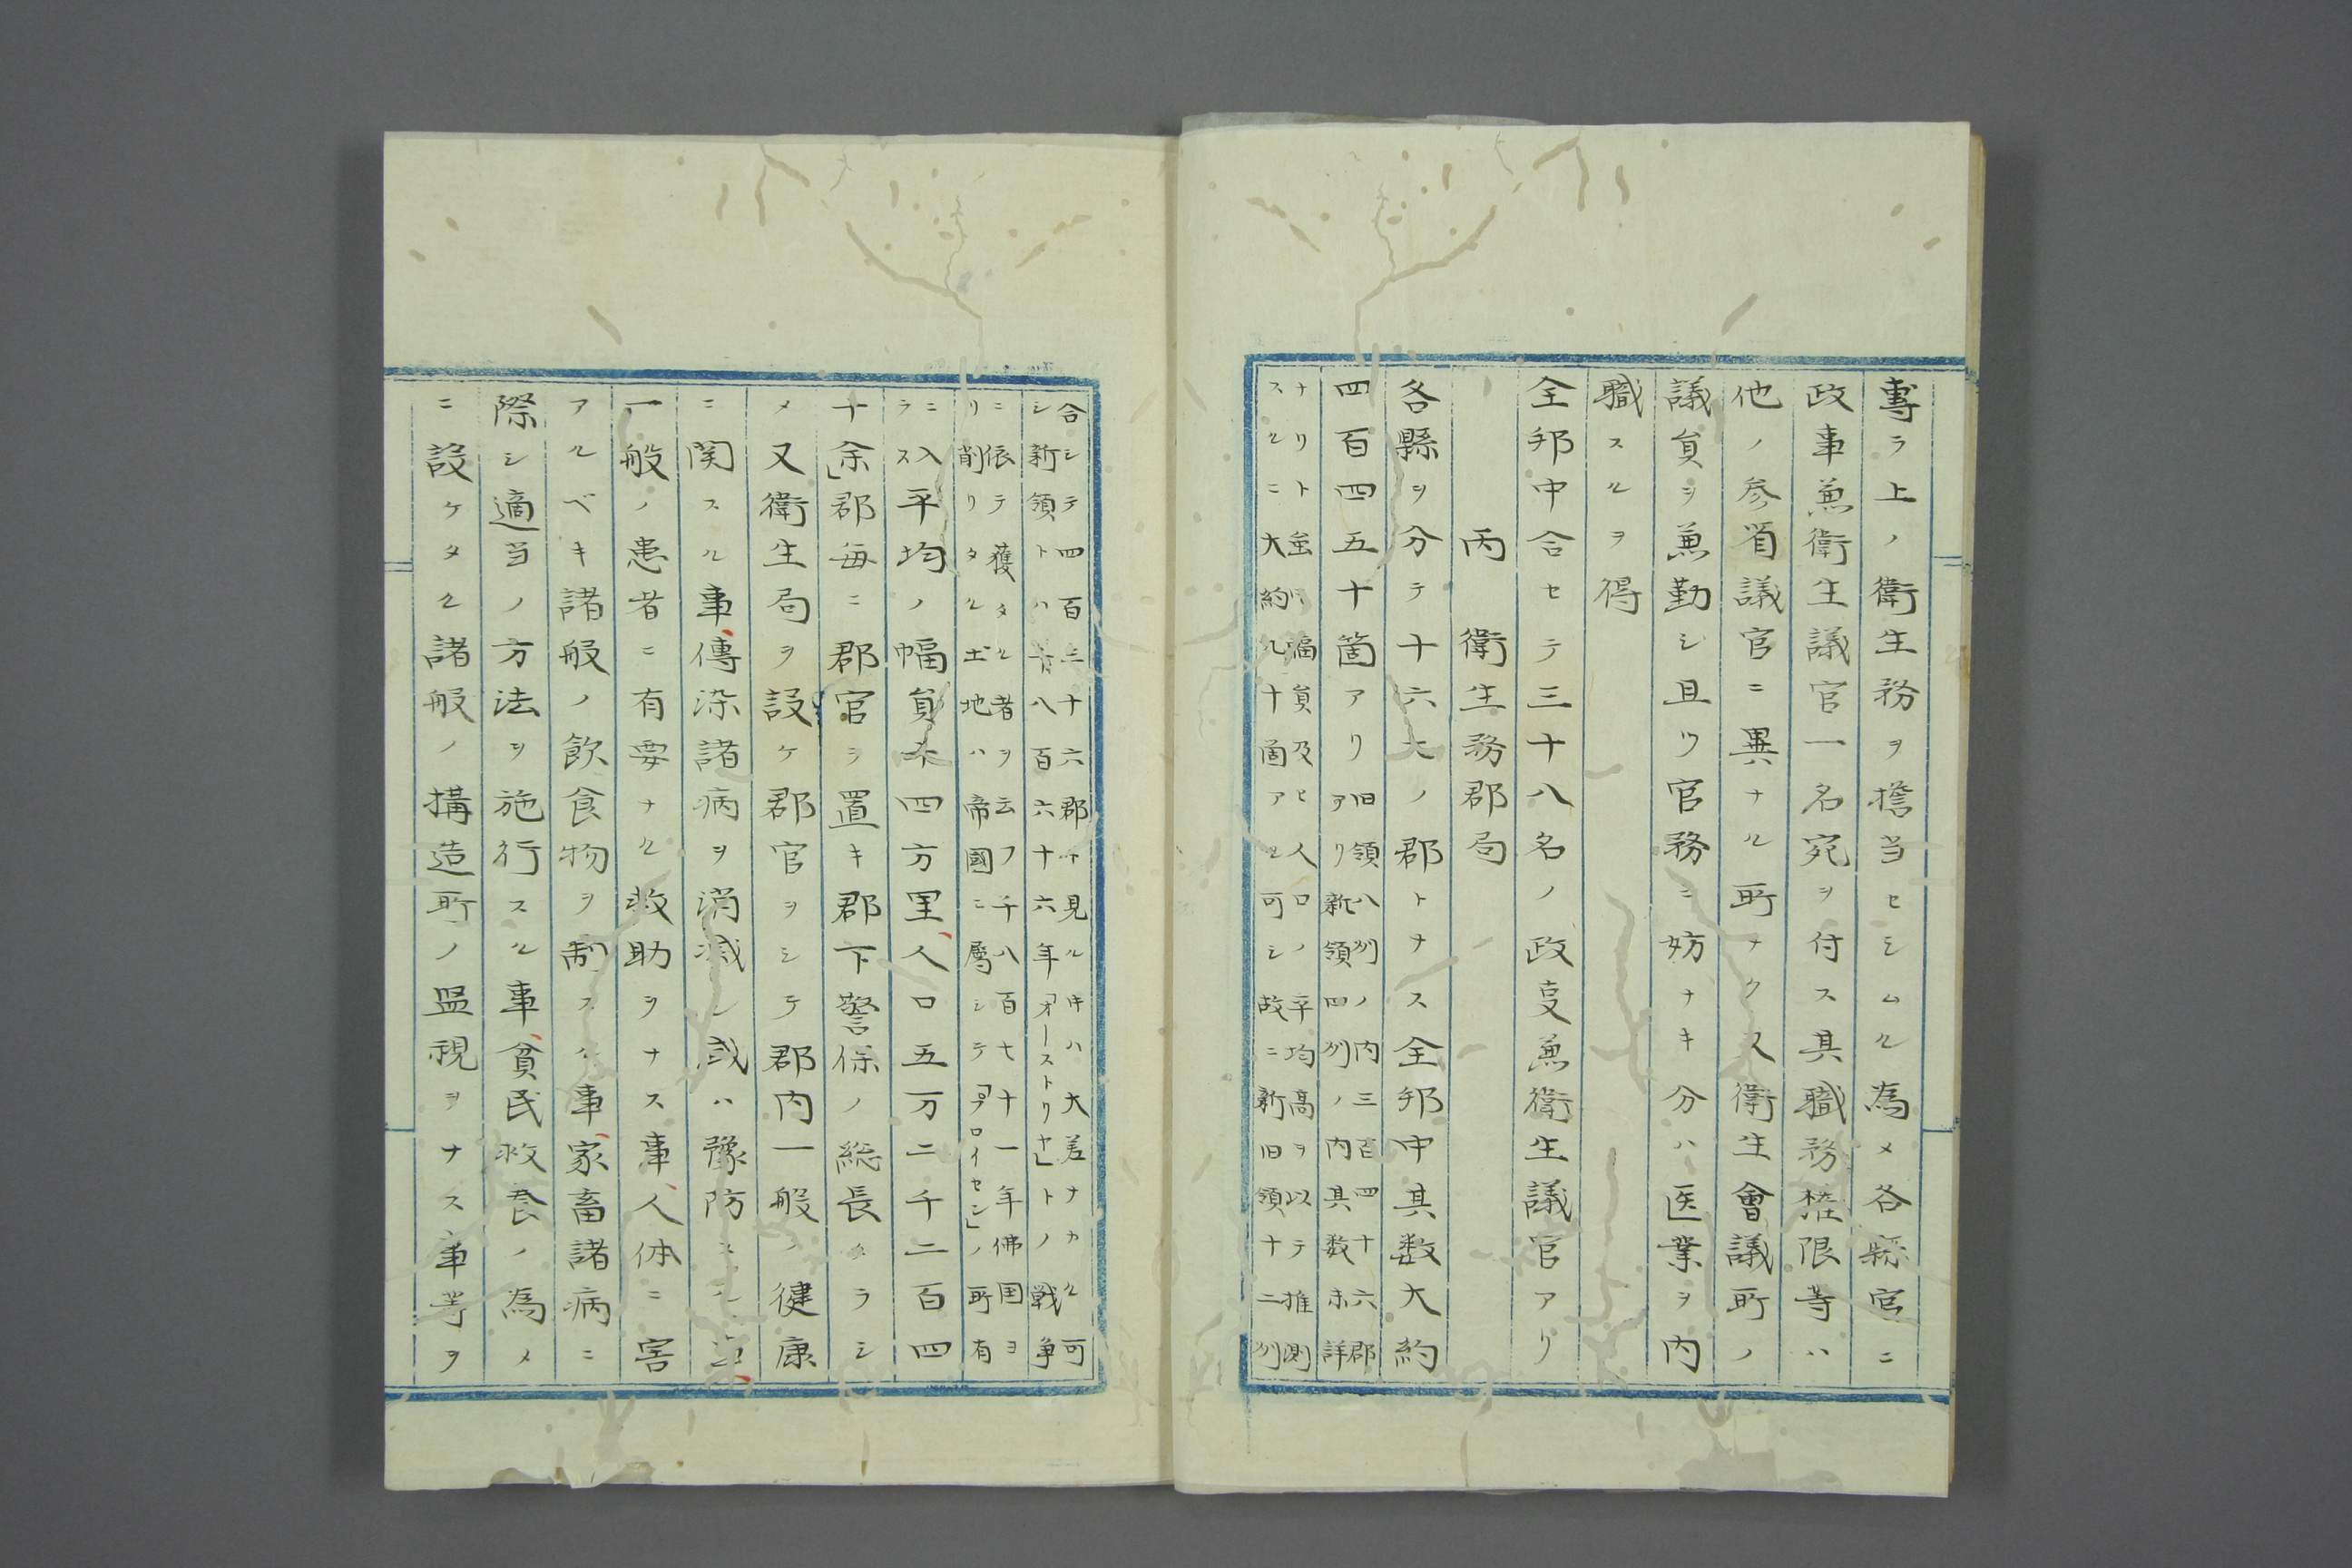 專ラ上ノ衛生務ヲ擔当セシムル為メ各縣官ニ
政事兼衛生議官一名宛ヲ付ス其職務権限等ハ
他ノ参省議官ニ異ナル所ナク又衛生會議所ノ
議員ヲ兼勤シ且ツ官務ニ妨ナキ分ハ医業ヲ内
職スルヲ得
全邦中合セテ三十八名ノ政叓兼衛生議官アリ
丙 衛生務郡局
各縣ヲ分テ十六七ノ郡トナス全邦中其数大約
四百四五十箇アリ
旧領八州ノ内三百四十六郡
アリ新領四州ノ内其数未詳
ナリト虽𪜈幅員及ヒ人口ノ平均高ヲ以テ推測
スルニ大約九十箇アル可シ故ニ新旧領十二州
合シテ四百三十六郡ト見ルキハ大差ナカル可
シ新領トハ千八百六十六年「オーストリヤ」トノ戦争
ニ依テ獲タル者ヲ云フ千八百七十一年佛国ヨ
リ削リタル土地ハ帝國ニ屬シテ「プロイセン」ノ所有
ニ入
ラス
平均ノ幅員大四方里、人口五万二千二百四
十余」郡毎ニ郡官ヲ置キ郡下警保ノ総長タラシ
メ又衛生局ヲ設ケ郡官ヲシテ郡内一般ノ健康
ニ関スル事、傳染諸病ヲ消滅シ或ハ豫防スル事、
一般ノ患者ニ有要ナル救助ヲナス事、人体ニ害
アルベキ諸般ノ飲食物ヲ制スル事、家畜諸病ニ
際シ適当ノ方法ヲ施行スル事、貧民救養ノ為メ
ニ設ケタル諸般ノ搆造所ノ監視ヲナス事等ヲ